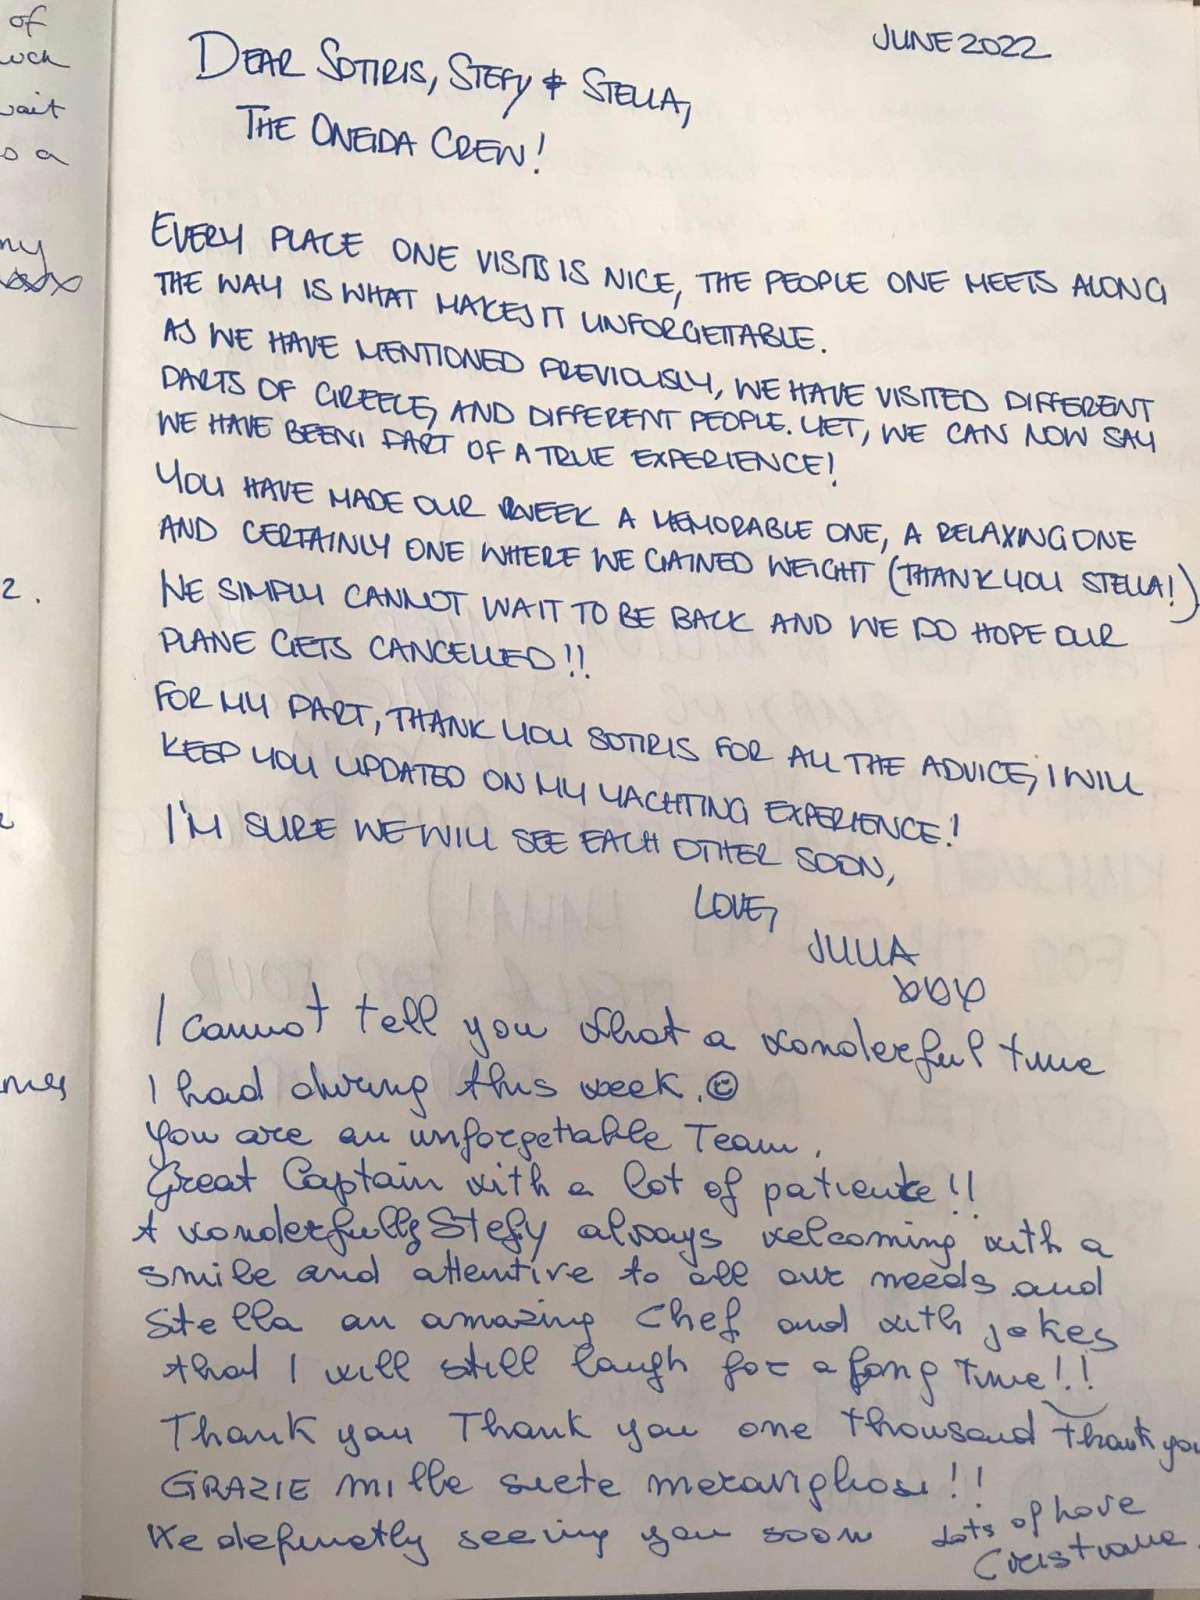 of
uch
wait
so a
ny
2.
mes
JUNE 2022
DEAR SOTIRIS, STEFY & STELLA,
THE ONEIDA CREW!
EVERY PLACE ONE VISITS IS NICE, THE PEOPLE ONE MEETS ALONG
THE WAY IS WHAT MAKES IT UNFORGETTABLE.
AS WE HAVE MENTIONED PREVIOUSLY, WE HAVE VISITED DIFFERENT
PARTS OF GREECE, AND DIFFERENT PEOPLE. YET, WE CAN NOW SAY
WE HAVE BEEN PART OF A TRUE EXPERIENCE!
YOU HAVE MADE OUR WEEK A MEMORABLE ONE, A RELAXING ONE
AND CERTAINLY ONE WHERE WE GAINED WEIGHT (THANK YOU STELLA!)
WE SIMPLY CANNOT WAIT TO BE BACK AND WE DO HOPE OUR
PLANE GETS CANCELLED!!
FOR MY PART, THANK YOU SOTIRIS FOR ALL THE ADVICE, I WILL
KEEP YOU UPDATED ON MY YACHTING EXPERIENCE!
I'M SURE WE WILL SEE EACH OTHER SOON,
LOVE,
JULIA
I cannot tell you what a wonderful time
I had during this week. ☺
You are an unforgettable Team.
Great Captain with a lot of patience!!
A wonderfully Stefy always welcoming with a
smile and attentive to all our needs and
Stella an amazing Chef and with jokes
that I will still laugh for a long time!!
Thank you Thank you one thousand thank you
GRAZIE mille siete meravigliosi!!
We definetly seeing you soon Lots of love
Cristiana